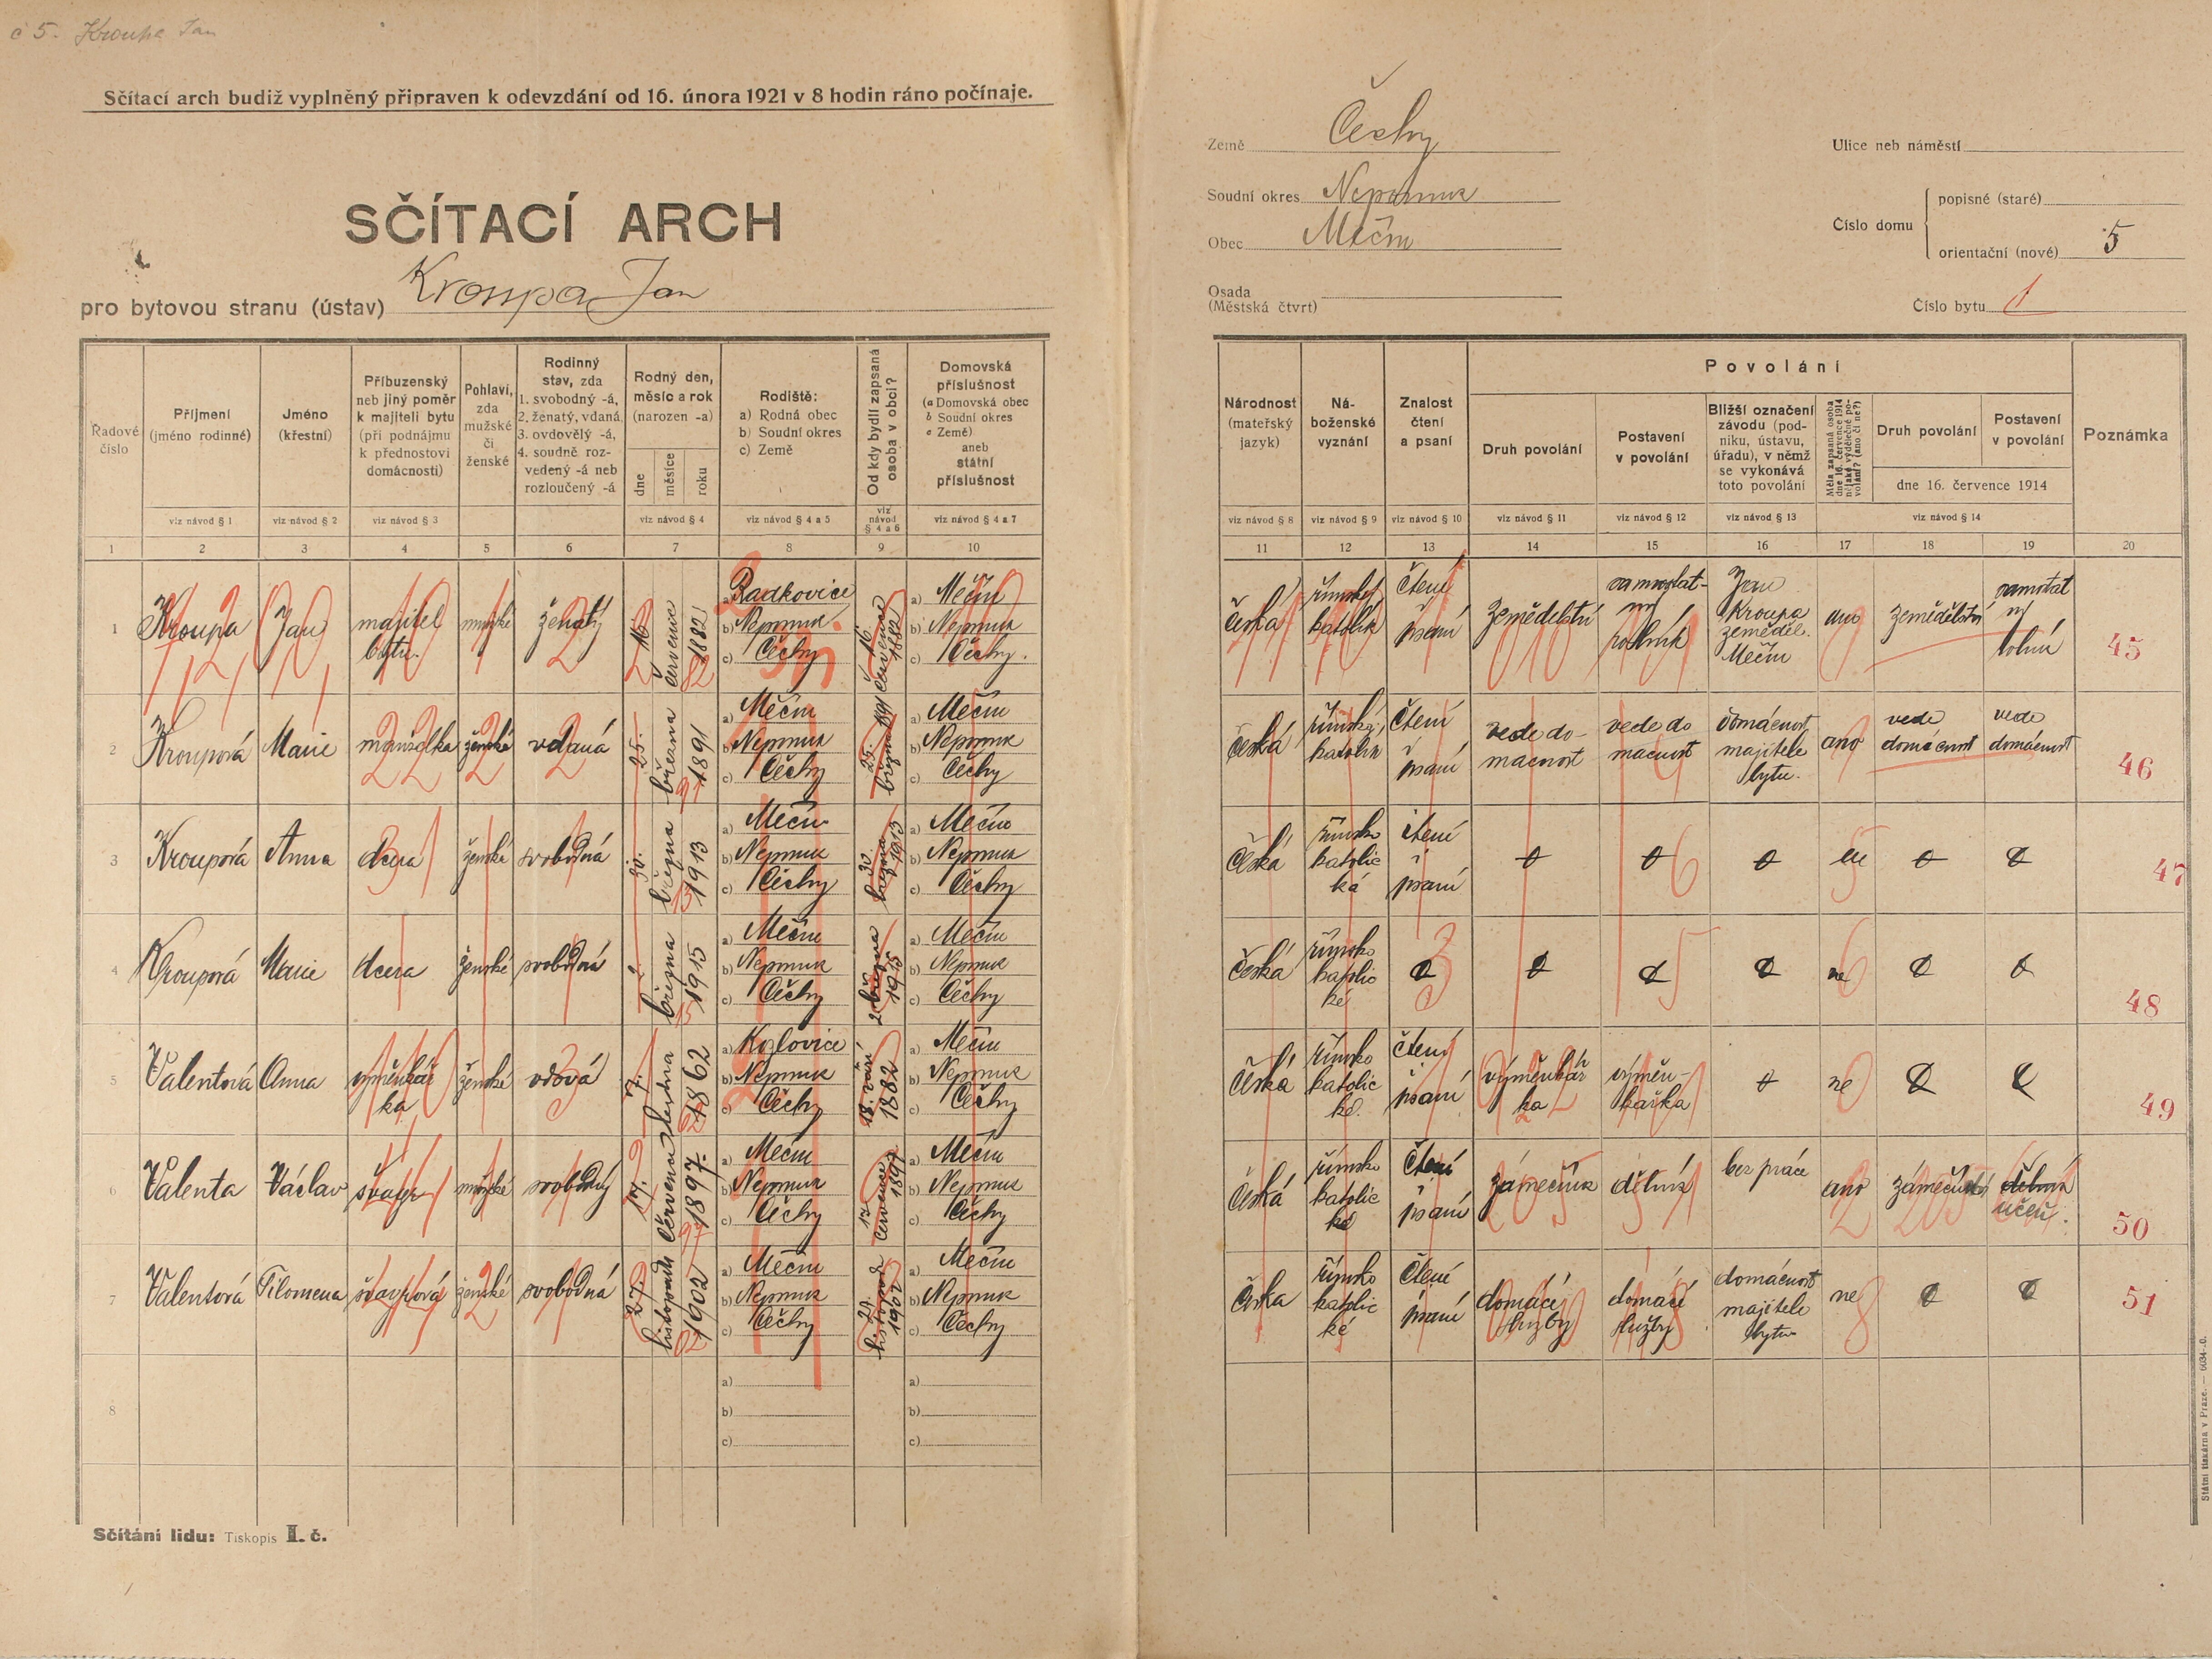 č 5. Kroupa Jan
Sčítací arch budiž vyplněný připraven k odevzdání od 16. února 1921 v 8 hodin ráno počínaje.
SČÍTACÍ ARCH
pro bytovou stranu (ústav) Kroupa Jan
Země Čechy
Soudní okres Nepomuk
Obec Mečín
Osada
(Městská čtvrt)
Ulice neb náměstí
Číslo domu
popisné (staré)
orientační (nové) 5
Číslo bytu 1
Řadové číslo
Příjmení (jméno rodinné)
Jméno (křestní)
Příbuzenský neb jiný poměr k majiteli bytu (při podnájmu k přednostovi domácnosti)
Pohlaví, zda mužské či ženské
Rodinný stav, zda 1. svobodný -á, 2. ženatý, vdaná, 3. ovdovělý -á, 4. soudně rozvedený -á neb rozloučený -á
Rodný den, měsíc a rok (narozen -a)
dne měsíce roku
Rodiště: a) Rodná obec b) Soudní okres c) Země
Od kdy bydlí zapsaná osoba v obci?
Domovská příslušnost (a Domovská obec b Soudní okres c Země) aneb státní příslušnost
viz návod § 1 viz návod § 2 viz návod § 3 viz návod § 4 viz návod § 4 a 5 viz návod § 4 a 6 viz návod § 4 a 7
1 2 3 4 5 6 7 8 9 10
Národnost (mateřský jazyk)
Náboženské vyznání
Znalost čtení a psaní
Povolání
Druh povolání
Postavení v povolání
Bližší označení závodu (podniku, ústavu, úřadu), v němž se vykonává toto povolání
Měla zapsaná osoba dne 16. července 1914 nějaké výdělečné povolání? (ano či ne?)
Druh povolání
Postavení v povolání
dne 16. července 1914
Poznámka
viz návod § 8 viz návod § 9 viz návod § 10 viz návod § 11 viz návod § 12 viz návod § 13 viz návod § 14
11 12 13 14 15 16 17 18 19 20
1 Kroupa Jan majitel bytu. mužské ženatý 16. července 1882 a) Radkovice b) Nepomuk c) Čechy 16. července 1882 a) Mečín b) Nepomuk c) Čechy.
česká římský katolík čtení psaní zemědělství samostatný rolník Jan Kroupa zeměděl. Mečín ano zemědělství samostatný rolník 45
2 Kroupová Marie manželka ženské vdaná 25. března 1891 a) Mečín b) Nepomuk c) Čechy 25. března 1891 a) Mečín b) Nepomuk c) Čechy
česká čtení i psaní vede domácnost vede domácnost domácnost majitele bytu. ano vede domácnost vede domácnost 46
3 Kroupová Anna dcera ženské svobodná 30. března 1913 a) Mečín b) Nepomuk c) Čechy 30. března 1913 a) Mečín b) Nepomuk c) Čechy
česká římsko katolická čtení i psaní 0 0 0 ne 0 0 47
4 Kroupová Marie dcera ženské svobodná 2. března 1915 a) Mečín b) Nepomuk c) Čechy 2. března 1915 a) Mečín b) Nepomuk c) Čechy
česká římsko katolické 0 0 0 0 ne 0 0 48
5 Valentová Anna výměnkářka ženské vdová 7. 1862 a) Kozlovice b) Nepomuk c) Čechy 18. září 1882 a) Mečín b) Nepomuk c) Čechy
česká římsko katolické. čtení psaní výměnkářka výměnkařka 0 ne 0 0 49
6 Valenta Václav švagr mužské svobodný 17. července 1897. a) Mečín b) Nepomuk c) Čechy 17 července 1897 a) Mečín b) Nepomuk c) Čechy
česká římsko katolické čtení psaní zámečník dělník bez práce ano zámečnictví dělník učeň. 50
7 Valentová Filomena švagrová ženské svobodná 29. listopadu 1902 a) Mečín b) Nepomuk c) Čechy 29. listopad 1902 a) Mečín b) Nepomuk c) Čechy
česka římsko katolické čtení psaní domácí služby domácí služby domácnost majitele bytu ne 0 0 51
8 a) b) c) a) b) c)
Sčítání lidu: Tiskopis II. č.
Státní tiskárna v Praze. — 6034-20.